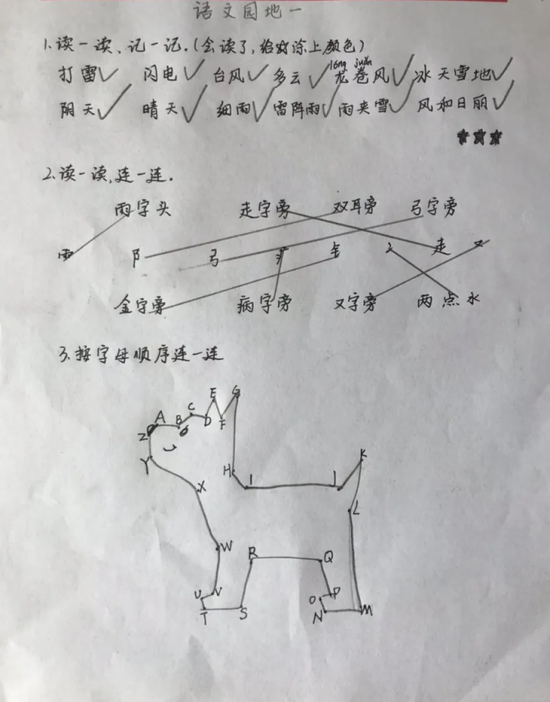 语文园地一
1.读一读、记一记.(会读了,给对涂上颜色)
lóng juǎn
打雷✓ 闪电✓ 台风✓ 多云✓ 龙卷风✓ 冰天雪地✓
阴天✓ 晴天✓ 细雨✓ 雷阵雨✓ 雨夹雪✓ 风和日丽✓
★★★
2.读一读,连一连.
雨字头 走字旁 双耳旁 弓字旁
⻗ 阝 弓 疒 钅 冫 走 又
金字旁 病字旁 又字旁 两点水
3.按字母顺序连一连
E G
A B C D F
Z
Y H I J K
X L
W R Q
U V O P
T S N M